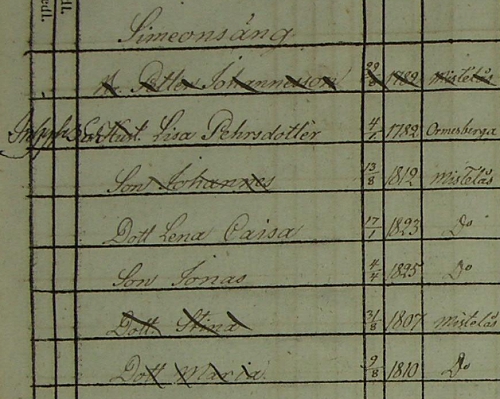 edl.
dl.
Simeonsäng
Petter Johannesson 29/8 1782 Mistelås
Enk Hust. Lisa Pehrsdotter 4/1 1782 Ormesberga
Son Johannes 13/8 1812 Mistelås
Dott Lena Caisa 17/1 1823 Do
Son Jonas 4/4 1825 Do
Dott Stina 31/8 1807 Mistelås
Dott Maria 9/8 1810 Do